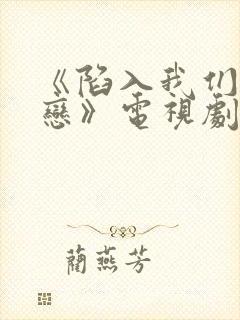 《陷入我们
戀》電視劇
蘭燕芳